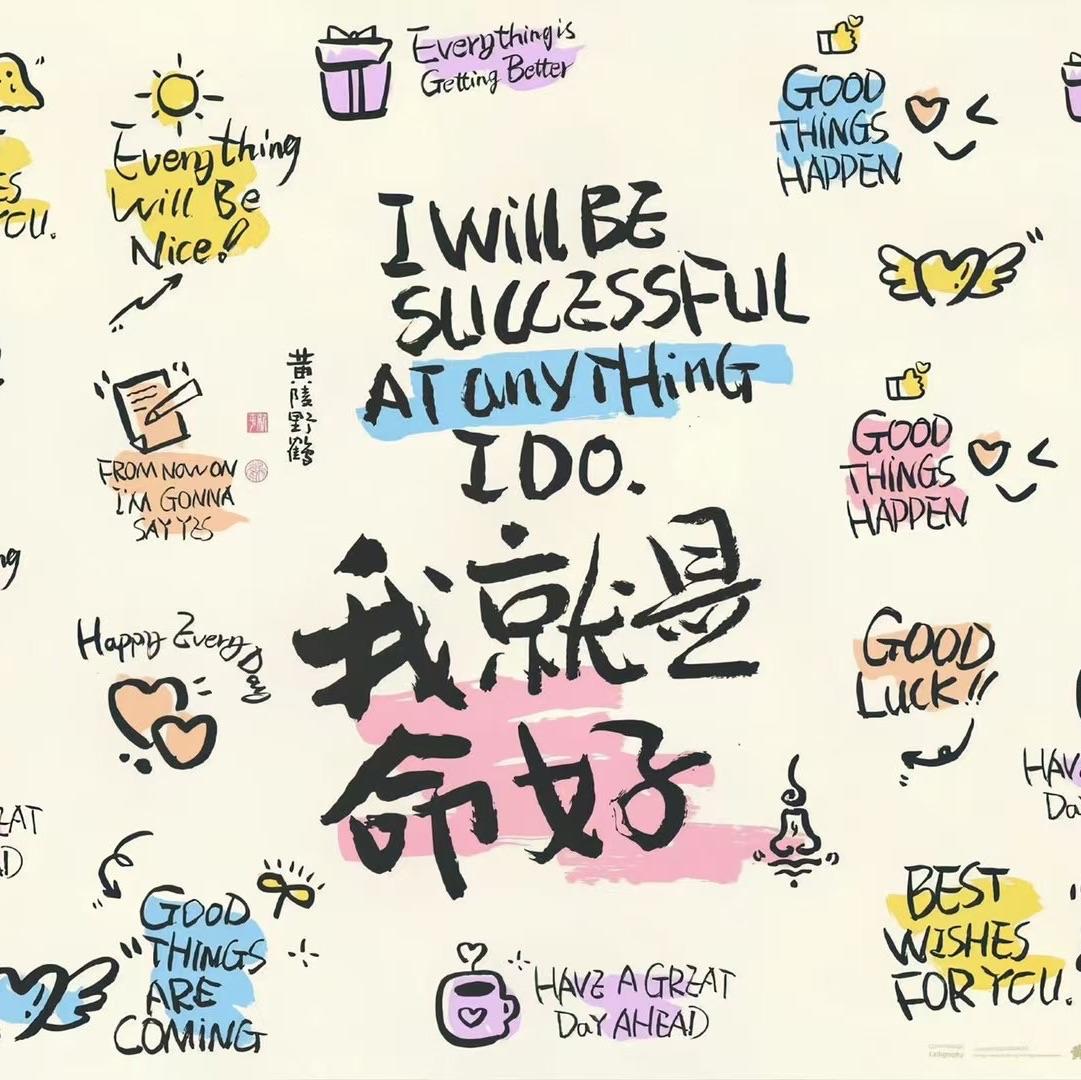 Everything is
Getting Better
GOOD
THINGS
HAPPEN
Everything
Will Be
Nice!
ES
YOU.
I Will BE
SUCCESSFUL
AT anyTHinG
I DO.
黄陵野鹤
FROM NOW ON
I'M GONNA
SAY YES
GOOD
THINGS
HAPPEN
我就是
命好
Happy Every Day
GOOD
LUCK!!
HAV
Da
EAT
AD
GOOD
THINGS
ARE
COMING
BEST
WISHES
FOR YOU.
HAVE A GREAT
DaY AHEAD